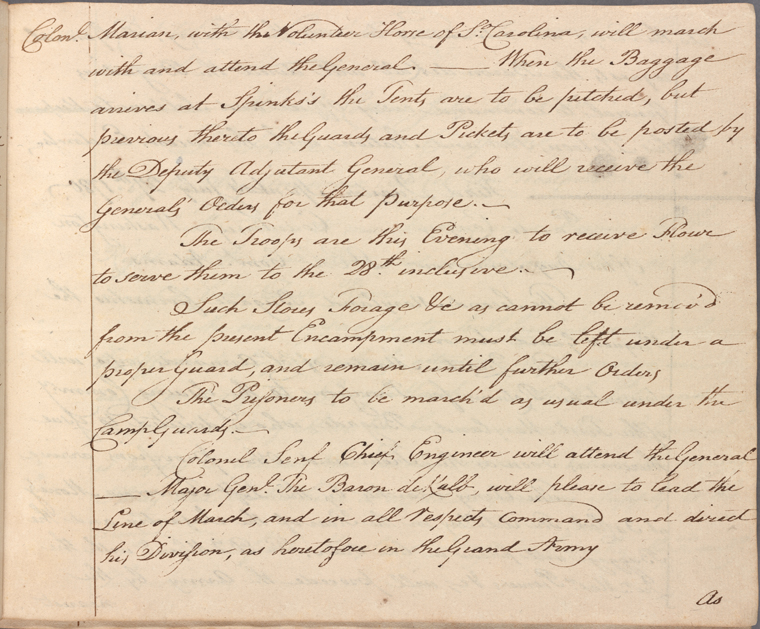 Colon.l Marian, with the Volunteer Horse of S.o Carolina, will march
with and attend the General. — When the Baggage
arrives at Spinks's the Tents are to be pitched, but
previous thereto the Guards and Pickets are to be posted by
the Deputy Adjutant General, who will receive the
General's Orders for that purpose. —
The Troops are this Evening to receive Flour
to serve them to the 28.th inclusive. —
Such Stores Forage &c as cannot be remov'd
from the present Encampment must be left under a
proper Guard, and remain until further Orders
The Prisoners to be march'd as usual under the
Camp Guards. —
Colonel Senf Chief Engineer will attend the General
— Major Gen.l The Baron de Kalb, will please to lead the
Line of March, and in all respects command and direct
his Division, as heretofore in the Grand Army
As